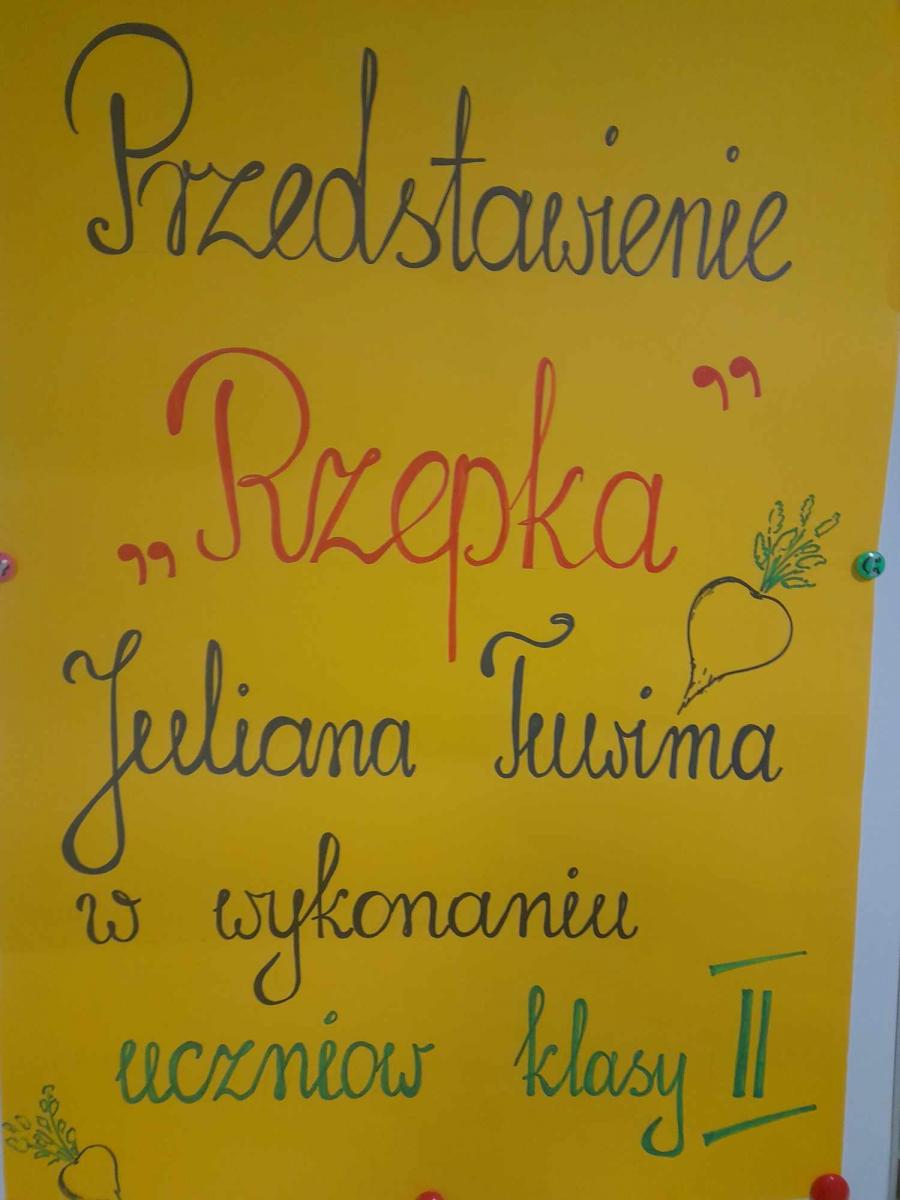 Przedstawienie
„Rzepka”
Juliana Tuwima
w wykonaniu
uczniow klasy II